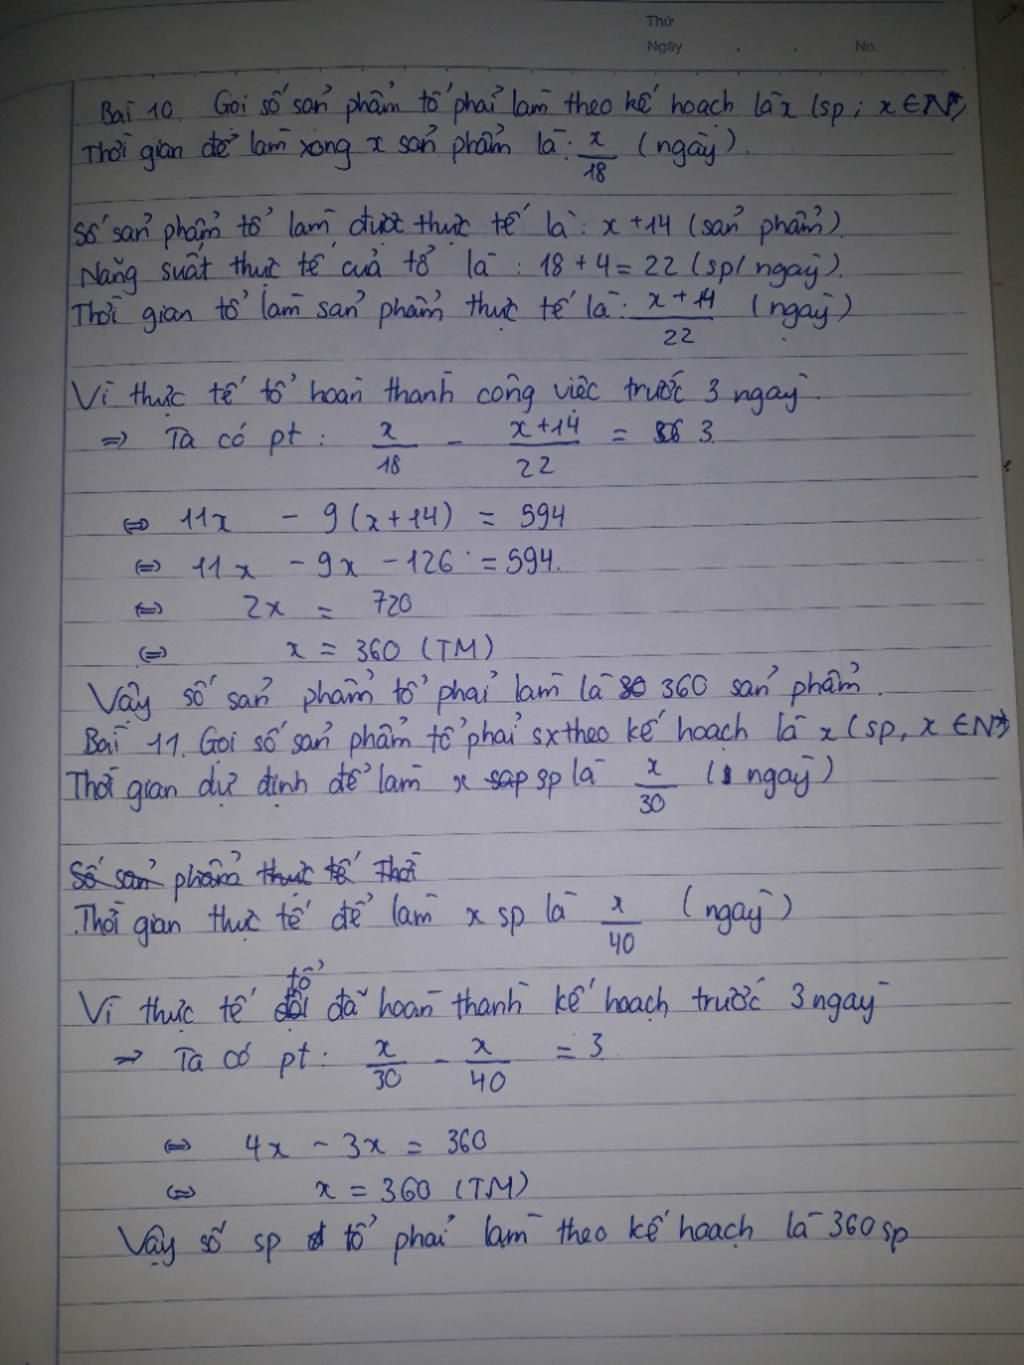 Thứ
Ngày . . No.
Bài 10. Gọi số sản phẩm tổ phải làm theo kế hoạch là x (sp; x ∈ N*)
Thời gian để làm xong x sản phẩm là: x/18 (ngày).
Số sản phẩm tổ làm được thực tế là: x+14 (sản phẩm).
Năng suất thực tế của tổ là: 18+4=22 (sp/ngày).
Thời gian tổ làm sản phẩm thực tế là: x+14/22 (ngày)
Vì thực tế tổ hoàn thành công việc trước 3 ngày.
=> Ta có pt: x/18 - x+14/22 = 3.
<=> 11x - 9(x+14) = 594
<=> 11x - 9x - 126 = 594.
<=> 2x = 720
<=> x = 360 (TM)
Vậy số sản phẩm tổ phải làm là 360 sản phẩm.
Bài 11. Gọi số sản phẩm tổ phải sx theo kế hoạch là x (sp, x ∈ N*)
Thời gian dự định để làm x sp là x/30 (ngày)
Số sản phẩm thực tế Thời
Thời gian thực tế để làm x sp là x/40 (ngày)
Vì thực tế tổ đã hoàn thành kế hoạch trước 3 ngày
=> Ta có pt: x/30 - x/40 = 3
<=> 4x - 3x = 360
<=> x = 360 (TM)
Vậy số sp tổ phải làm theo kế hoạch là 360 sp